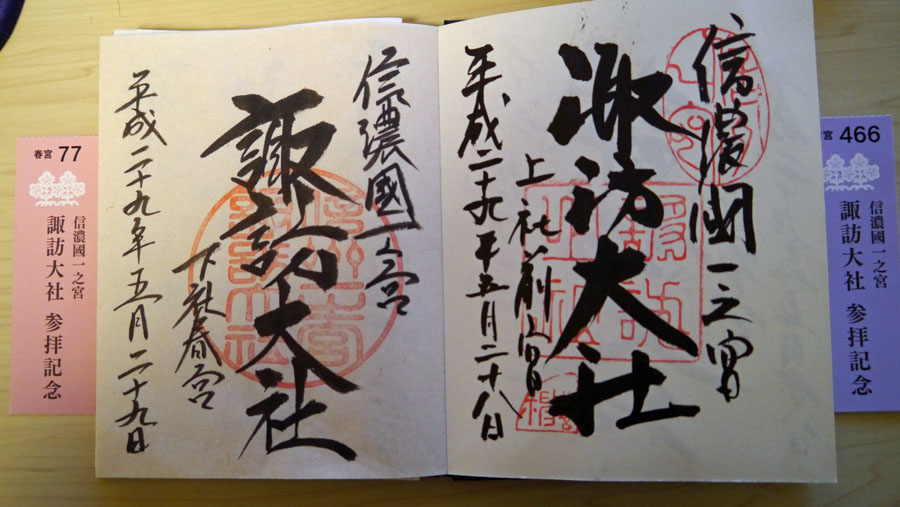 宮 466
信濃國一之宮
諏訪大社 参拝記念
信濃國一之宮
諏訪大社
上社前宮
平成二十九年五月二十八日
信濃國一之宮
諏訪大社
下社春宮
平成二十九年五月二十九日
春宮 77
信濃國一之宮
諏訪大社 参拝記念